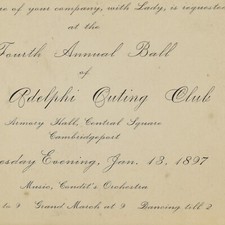 re of your company, with Lady, is requested
at the
Fourth Annual Ball
of
Adelphi Outing Club
Armory Hall, Central Square
Cambridgeport
esday Evening, Jan. 13, 1897
Music, Condit's Orchestra
to 9 Grand March at 9 Dancing till 2